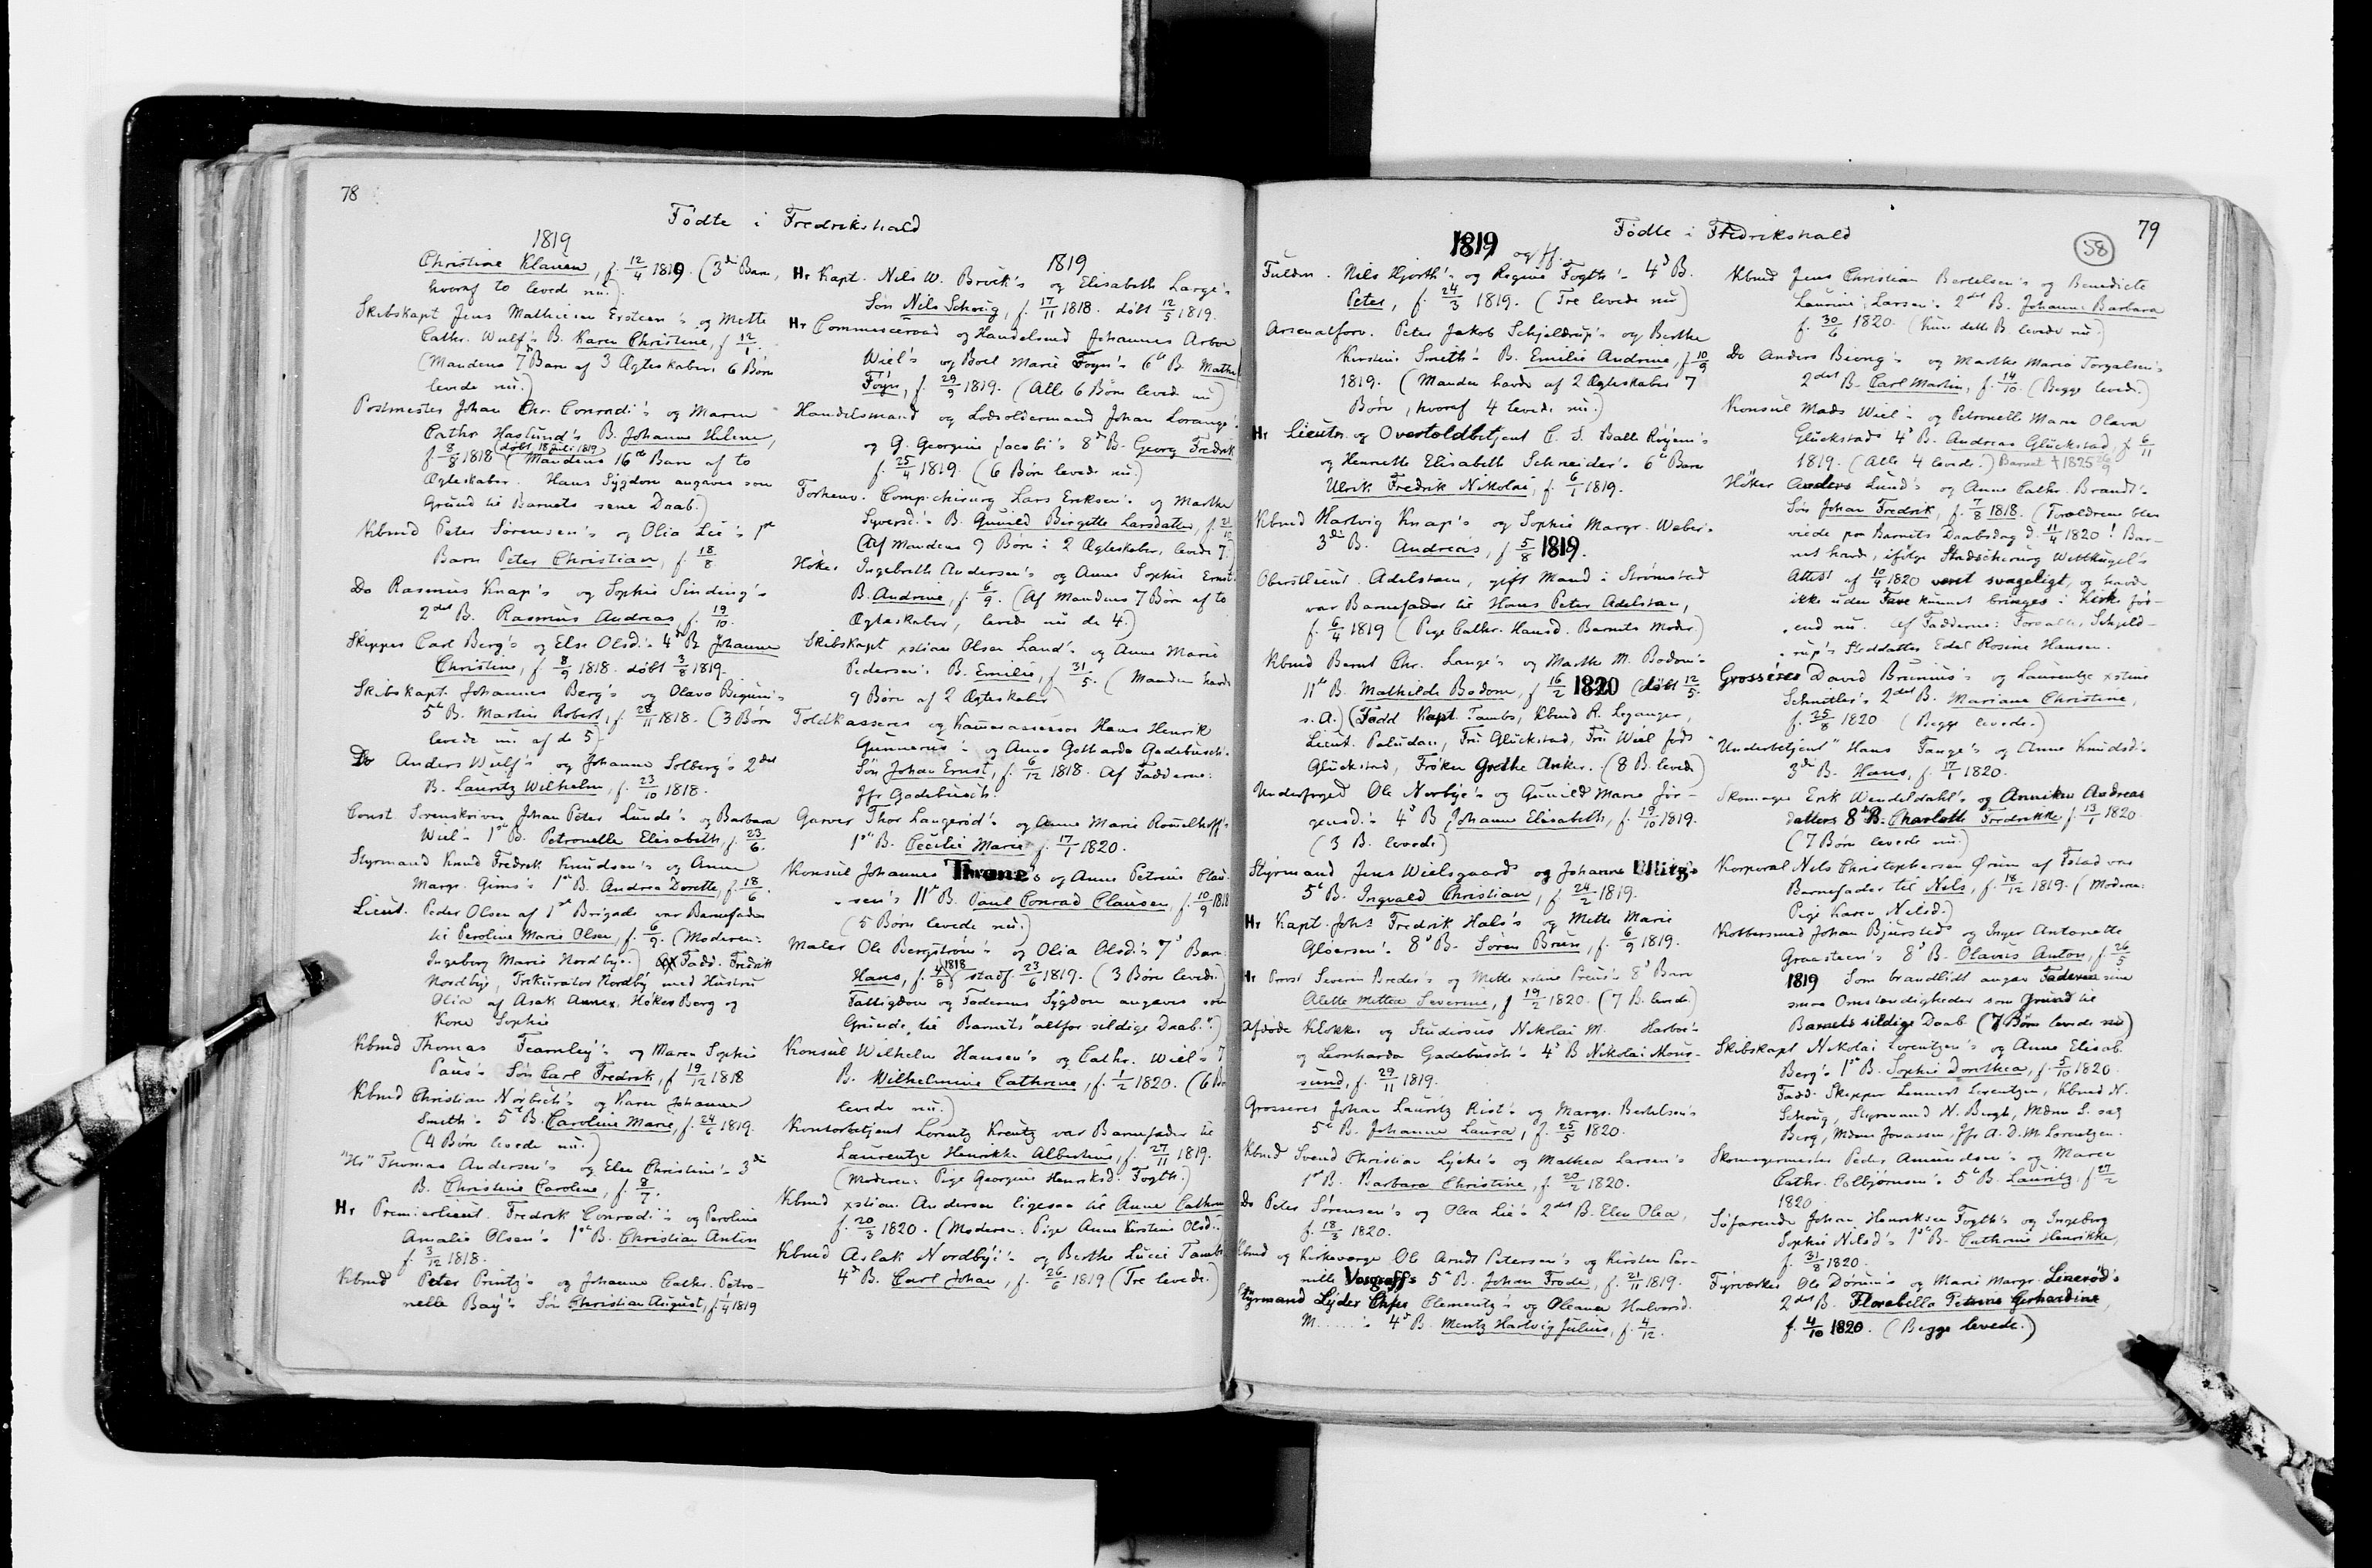 78
Fødte i Fredrikshald
1819
Christine Klauen, f. 12/4 1819. (3die Barn,
hvoraf to levede nu.)
Skibskapt Jens Mathiesen Ersteen's og Mette
Cathr. Wulf's B. Karen Christine, f 12/1.
(Mandens 7de Barn af 3 Ægteskaber. 6 Børn
levede nu.)
Postmester Johan Chr. Conradi's og Maren
Cathr Haslund's B. Johanne Helene,
f 8/8 1818 (døbt 18 juli 1819) (Mandens 16de Barn af to
Ægteskaber. Hans Sygdom angaves som
Grund til Barnets sene Daab.)
Kbmd Peter Sørensen's og Olia Lie's 1ste
Barn Peter Christian, f. 18/8.
Do Rasmus Knap's og Sophie Sinding's
2det B. Rasmus Andreas, f. 19/10.
Skipper Carl Berg's og Else Olsd's 4de B Johanne
Christine, f 8/9 1818. døbt 3/8 1819.
Skibskapt. Johannes Berg's og Olava Bigum's
5te B. Martin Robert, f 28/11 1818. (3 Børn
levede nu af de 5)
Do Anders Wulf's og Johanne Solberg's 2det
B. Lauritz Wilhelm, f. 23/10 1818.
Const. Sorenskriver Johan Peter Lunde's og Barbara
Wiel's 1ste B. Petronelle Elisabeth, f. 23/6.
Styrmand Knud Fredrik Knudsen's og Anne
Margr. Gims's 1ste B. Andrea Dorette, f. 18/6.
Lieut. Peder Olsen af 1ste Brigade var Barnefader
til Peroline Marie Olsen, f. 6/9. (Moderen:
Ingeborg Marie Nordbye.) Fadd. Fredrik
Nordbye, Prokurator Nordby med Hustru
Olia af Asak Annex, Høker Berg og
Kone Sophie
Kbmd Thomas Fearnley's og Maren Sophie
Paus's Søn Carl Fredrik, f 19/12 1818
Kbmd Christian Norbech's og Karen Johanne
Smith's 5te B. Caroline Marie, f. 24/6 1819.
(4 Børn levede nu.)
"Hr" Thomas Andersen's og Else Christine's 3die
B. Christine Caroline, f. 8/7.
Hr Premierlieut. Fredrik Conradi's og Peroline
Amalie Olsen's 1ste B. Christian Anton
f. 3/12 1818.
Kbmd Peter Printz's og Johanne Cathr. Petro-
nelle Bay's Søn Christian August, f 1/4 1819
1819
Hr Kapt. Nils W. Brock's og Elisabeth Large's
Søn Nils Schoug, f. 17/11 1818. døbt 12/5 1819.
Hr Commerceraad og Handelsmd Johannes Arboe
Wiel's og Boel Marie Foyn's 6te B. Mathe
Föyn, f. 29/9 1819. (Alle 6 Børn levede nu)
Handelsmand og Lodsoldermand Johan Lorange's
og G. Georgine Jacobi's 8de B. Georg Fredrik
f. 25/4 1819. (6 Børn levede nu.)
Forhenv. Comp.chirurg Lars Eriksen's og Marthe
Syversd's B. Gunild Birgitte Larsdatter, f. 21/10
(Af Mandens 9 Børn i 2 Ægteskaber, levede 7.)
Høker Ingebreth Andersen's og Anne Sophie Ernst's
B. Andrine, f. 6/9. (Af Mandens 7 Børn af to
Ægteskaber, levede nu de 4.)
Skibskapt xstian Olsen Land's og Anne Marie
Pedersen's B. Emilie, f 31/5. (Manden havde
9 Børn af 2 Ægteskaber)
Toldkasserer og Kammerassessor Hans Henrik
Gunnerus's og Anna Gotharda Gadebusch's
Søn Johan Ernst, f. 6/12 1818. Af Fadderne:
Jfr Gadebusch.
Garver Thor Langerød's og Anne Marie Romelhoff's
1ste B. Cecilie Marie f. 17/1 1820.
Konsul Johannes Thrane's og Anne Petrine Clau-
sen's 11te B. Paul Conrad Clausen, f. 10/9 1818
(5 Børn levede nu.)
Maler Ole Bergstrøm's og Olia Olsd's 7de Barn
Hans, f. 4/8 1818 stadf. 23/6 1819. (3 Børn levede.)
Fattigdom og Faderens Sygdom angaves som
Grunde til Barnets "altfor sildige Daab".)
Konsul Wilhelm Hansen's og Cathr. Wiel's 7
B. Wilhelmine Cathrine, f. 1/2 1820. (6 B
levede nu.)
Kontorbetjent Lorentz Kreutz var Barnefader til
Laurentze Henrikke Albertine, f. 27/11 1819.
(Moderen: Pige Georgine Henriksd. Fogth.)
Kbmd xstian Andersen ligesaa til Anne Cathrine
f. 20/3 1820. (Moderen: Pige Anne Kirstine Olsd.)
Kbmd Aslak Nordbye's og Berthe Lucie Tambs
4de B. Carl Johan, f. 26/6 1819 (Tre levede.)
79
58
Fødte i Fredrikshald
1819 og ff.
Fuldm. Nils Hjorth's og Regine Fogth's 4de B.
Peter, f. 24/3 1819. (Tre levede nu)
Arsenalforv. Peter Jakob Schjeldrup's og Berthe
Kirstine Smith's B. Emilie Andrine, f 10/9
1819. (Manden havde af 2 Ægteskaber 7
Børn, hvoraf 4 levede nu.)
Hr Lieutn. og Overtoldbetjent C. S. Balle Røyem's
og Henrette Elisabeth Schneider's 6te Barn
Ulrik Fredrik Nikolai, f. 6/1 1819.
Kbmd Hartvig Knap's og Sophie Margr. Weber's
3die B. Andreas, f 5/8 1819.
Oberstlieut. Adelstaen, gift Mand i Strømstad
var Barnefader til Hans Peter Adelstaen,
f. 6/4 1819 (Pige Cathr. Hansd. Barnets Moder.)
Kbmd Bernt Chr. Lange's og Marthe M. Bodom's
11te B. Mathilde Bodom, f 16/2 1820 (døbt 12/5.
s. A.) (Fadd Kapt. Tambs, Kbmd R. Leganger,
Lieut. Paludan, Fru Glückstad, Fru Wiel født
Glückstad, Frøken Grethe Anker. (8 B. levede)
Underfoged Ole Norbye's og Gunild Marie Jør-
gensd's 4de B Johanne Elisabeth, f. 19/10 1819.
(3 B. levede)
Styrmand Jens Wielsgaards og Johanne Ellitg's
5te B. Ingvald Christian, f 24/2 1819.
Hr Kapt. Johs Fredrik Hals's og Mette Marie
Gløersen's 8de B. Søren Bruun, f. 6/9 1819.
Hr Provst Severin Breder's og Mette xstine Preus's 8de Barn
Alette Mettea Severine, f 19/2 1820. (7 B. levede)
Afdøde Klokker og Studiosus Nikolai M. Harboe's
og Leonharda Gadebusch's 4de B Nikolai Mous-
sund, f. 29/11 1819.
Grosserer Johan Lauritz Rist's og Margr. Bertelsen's
5te B. Johanne Laura, f. 25/5 1820.
Kbmd Svend Christian Lyche's og Mathea Larsen's
1ste B. Barbara Christine, f. 20/2 1820.
Do Peter Sørensen's og Olea Lie's 2det B. Elen Olea,
f. 18/3 1820.
Kbmd og Kirkeværge Ole Arndt Petersen's og Kirsten Per-
nille Vosgraff's 5te B. Johan Frode, f. 21/11 1819.
Styrmand Lyder Clementz's og Oleana Halvorsd.
M.....'s 4de B. Mentz Hartvig Julius, f. 4/12.
Kbmd Jens Christian Bertelsen's og Benedicte
Laurine Larsen's 2det B. Johanne Barbara
f. 30/6 1820. (Kun dette B levede nu.)
Do Anders Biong's og Marthe Maria Torgalsen's
2det B. Carl Martin, f. 14/10. (Begge levede.)
Konsul Mads Wiel's og Petronelle Maren Olava
Glückstad's 4de B. Andreas Glückstad, f 6/11
1819. (Alle 4 levede.) Barnet † 1825
Høker Anders Lund's og Anne Cathr. Brandt's
Søn Johan Fredrik, f. 7/8 1818. (Forældrene blev
viede paa Barnets Daabsdag d. 11/4 1820! Bar-
net havde, ifølge Stadschirurg Wettkugel's
Attest af 10/4 1820 været svageligt, og havde
ikke uden Fare kunnet bringes i Kirke før-
end nu. Af Fadderne: Forvalter Schjeld-
rup's Steddatter Edel Rosine Hansen.
Grosserer David Brunius's og Laurentze xstine
Schnitler's 2det B. Mariane Christine,
f. 25/8 1820 (Begge levede.)
"Underbetjent" Hans Tange's og Anne Knudsd's
3die B. Hans, f. 17/1 1820.
Skomager Erik Wendeldahl's og Anniken Andreas
datters 8de B. Charlotte Fredrikke f. 13/1 1820.
(7 Børn levede nu.)
Korporal Nils Christophersen Ørum af Istad var
Barnefader til Nils, f. 18/12 1819. (Moderen:
Pige Karen Nilsd.)
Kobbersmed Johan Bjursted's og Inger Antonette
Graasteen's 8de B. Olavus Anton, f. 26/5
1819 Som brandlidt angav Faderen sine
smaa Omstændigheder som Grund til
Barnets sildige Daab (7 Børn levede nu)
Skibskapt Nikolai Lorentzen's og Anne Elisab.
Berg's 1ste B. Sophie Dorothea, f. 5/10 1820.
Fadd. Skipper Lennert Lorentzen, Kbmd N.
Schoug, Styrmand N. Bergh, Mdme L. sag
Berg, Mdme Jonassen, Jfr A. D. M. Lorentzen.
Skomagermester Peder Amundsen's og Maren
Cathr. Colbjørnsen's 5te B. Lauritz f 27/2
1820.
Søfarende Johan Henriksen Fogth's og Ingeborg
Sophie Nilsd's 1ste B. Cathrine Henrikke,
f. 31/8 1820.
Fyrværker Ole Dørum's og Marie Margr. Lizerød's
2det B. Florabella Petrine Gerhardine,
f. 4/10 1820. (Begge levede.)